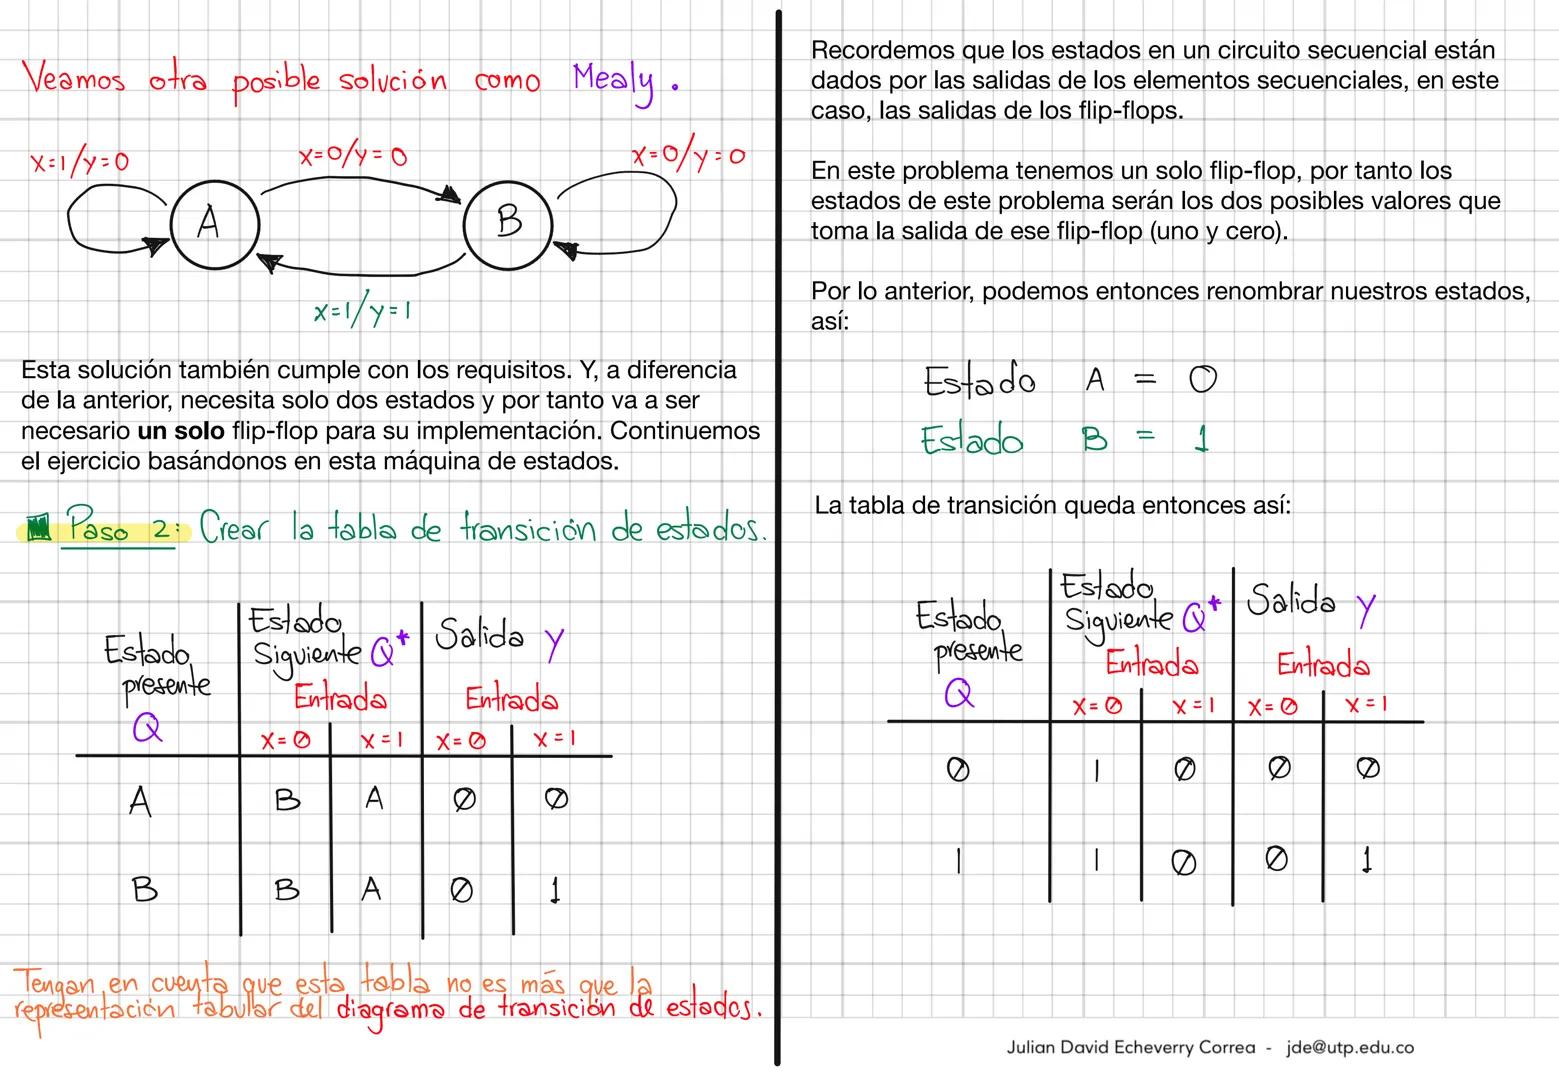 Veamos otra posible solución como Mealy.
x=1/y=0
x=0/y=0
x=0/y=0
A
B
x=1/y=1
Esta solución también cumple con los requisitos. Y, a diferencia
de la anterior, necesita solo dos estados y por tanto va a ser
necesario un solo flip-flop para su implementación. Continuemos
el ejercicio basándonos en esta máquina de estados.
Paso 2: Crear la tabla de transición de estados.
Estado presente Q
Estado Siguiente Q*
Salida y
Entrada Entrada
x=0 x=1 x=0 x=1
A B A 0 0
B B A 0 1
Tengan en cuenta que esta tabla no es más que la
representación tabular del diagrama de transición de estados.
Recordemos que los estados en un circuito secuencial están
dados por las salidas de los elementos secuenciales, en este
caso, las salidas de los flip-flops.
En este problema tenemos un solo flip-flop, por tanto los
estados de este problema serán los dos posibles valores que
toma la salida de ese flip-flop (uno y cero).
Por lo anterior, podemos entonces renombrar nuestros estados,
así:
Estado A = 0
Estado B = 1
La tabla de transición queda entonces así:
Estado presente Q
Estado Siguiente Q*
Salida y
Entrada Entrada
x=0 x=1 x=0 x=1
0 1 0 0 0
1 1 0 0 1
Julian David Echeverry Correa - jde@utp.edu.co